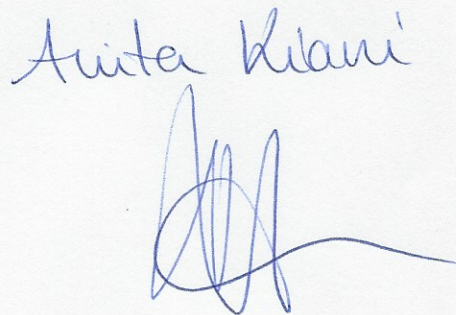 Anita Kiani